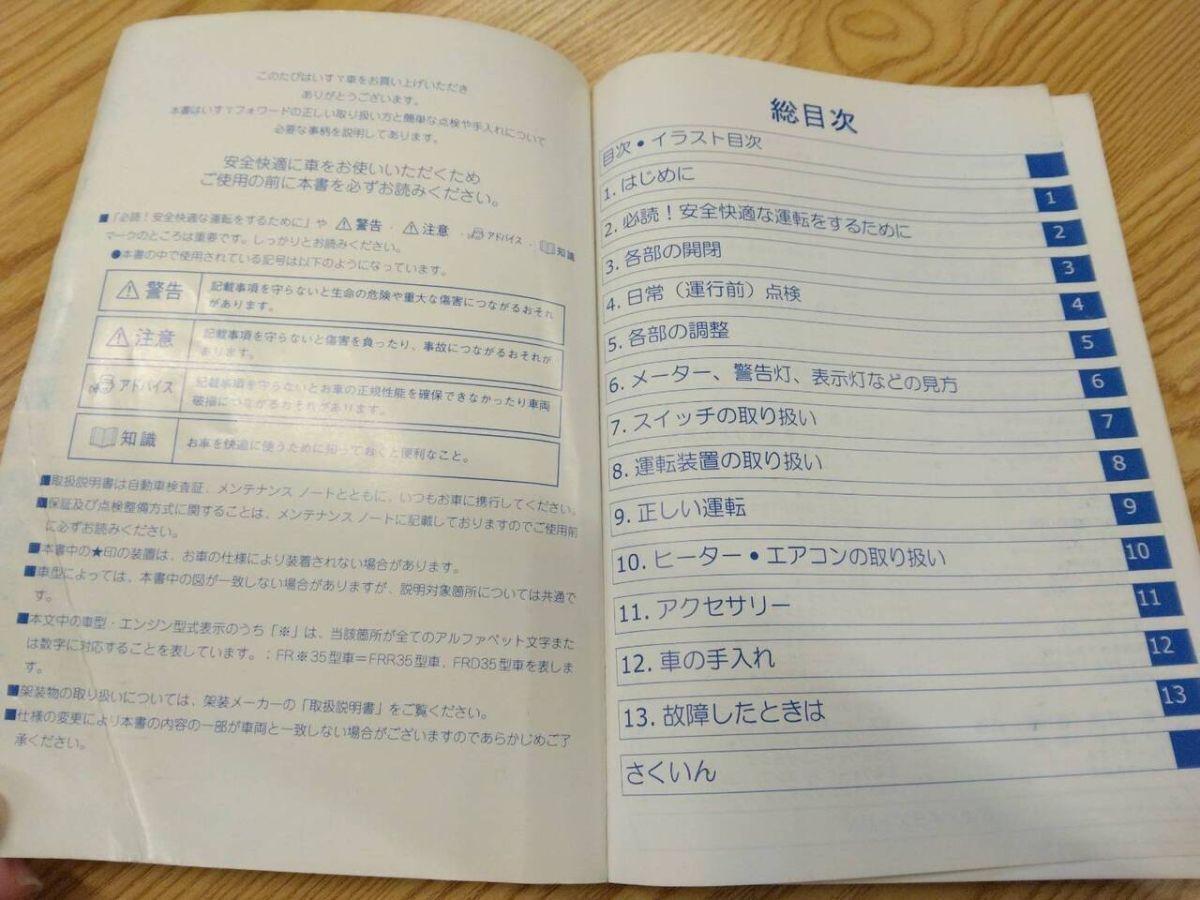 このたびはいすゞ車をお買い上げいただき
ありがとうございます。
本書はいすゞフォワードの正しい取り扱い方と簡単な点検や手入れについて
必要な事柄を説明してあります。
安全快適に車をお使いいただくため
ご使用の前に本書を必ずお読みください。
■「必読！安全快適な運転をするために」や ⚠警告 ・ ⚠注意 ・ アドバイス ・ 知識
マークのところは重要です。しっかりとお読みください。
●本書の中で使用されている記号は以下のようになっています。
⚠警告
記載事項を守らないと生命の危険や重大な傷害につながるおそれ
があります。
⚠注意
記載事項を守らないと傷害を負ったり、事故につながるおそれが
あります。
アドバイス
記載事項を守らないとお車の正規性能を確保できなかったり車両
破損につながるおそれがあります。
知識
お車を快適に使うために知っておくと便利なこと。
■取扱説明書は自動車検査証、メンテナンス ノートとともに、いつもお車に携行してください。
■保証及び点検整備方式に関することは、メンテナンス ノートに記載しておりますのでご使用前
に必ずお読みください。
■本書中の★印の装置は、お車の仕様により装着されない場合があります。
■車型によっては、本書中の図が一致しない場合がありますが、説明対象箇所については共通で
す。
■本文中の車型・エンジン型式表示のうち「※」は、当該箇所が全てのアルファベット文字また
は数字に対応することを表しています。：FR※35型車＝FRR35型車、FRD35型車を表しま
す。
■架装物の取り扱いについては、架装メーカーの「取扱説明書」をご覧ください。
■仕様の変更により本書の内容の一部が車両と一致しない場合がございますのであらかじめご了
承ください。
総目次
目次・イラスト目次
1. はじめに 1
2. 必読！安全快適な運転をするために 2
3. 各部の開閉 3
4. 日常（運行前）点検 4
5. 各部の調整 5
6. メーター、警告灯、表示灯などの見方 6
7. スイッチの取り扱い 7
8. 運転装置の取り扱い 8
9. 正しい運転 9
10. ヒーター・エアコンの取り扱い 10
11. アクセサリー 11
12. 車の手入れ 12
13. 故障したときは 13
さくいん